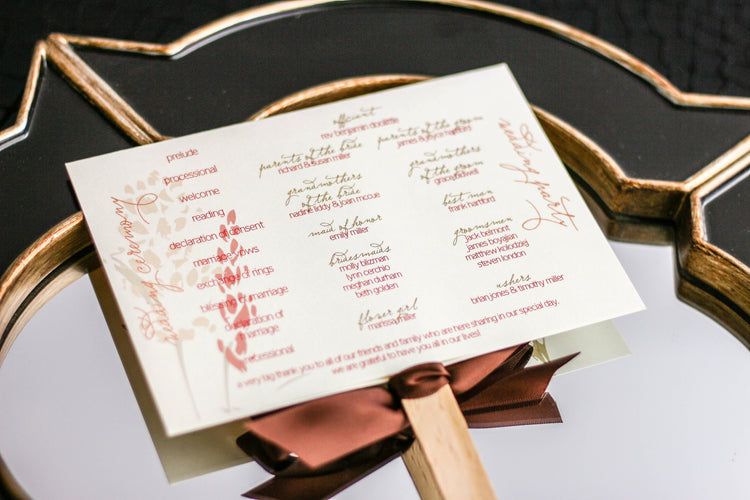 wedding ceremony
prelude
processional
welcome
reading
declaration of consent
marriage vows
exchange of rings
blessing of marriage
declaration of
marriage
recessional
officient
rev benjamin doolittle
parents of the bride
richard & susan miller
grandmothers
of the bride
nadine liddy & joan mccue
maid of honor
emily miller
bridesmaids
molly blizman
lynn cerchio
meghan durham
beth golden
flower girl
marissa miller
parents of the groom
james & joyce hartford
grandmothers
of the groom
grace tidwell
best man
frank hartford
groomsmen
jack belmont
james boyajian
matthew kolodziej
steven london
ushers
brian jones & timothy miller
wedding party
a very big thank you to all of our friends and family who are here sharing in our special day.
we are grateful to have you all in our lives!